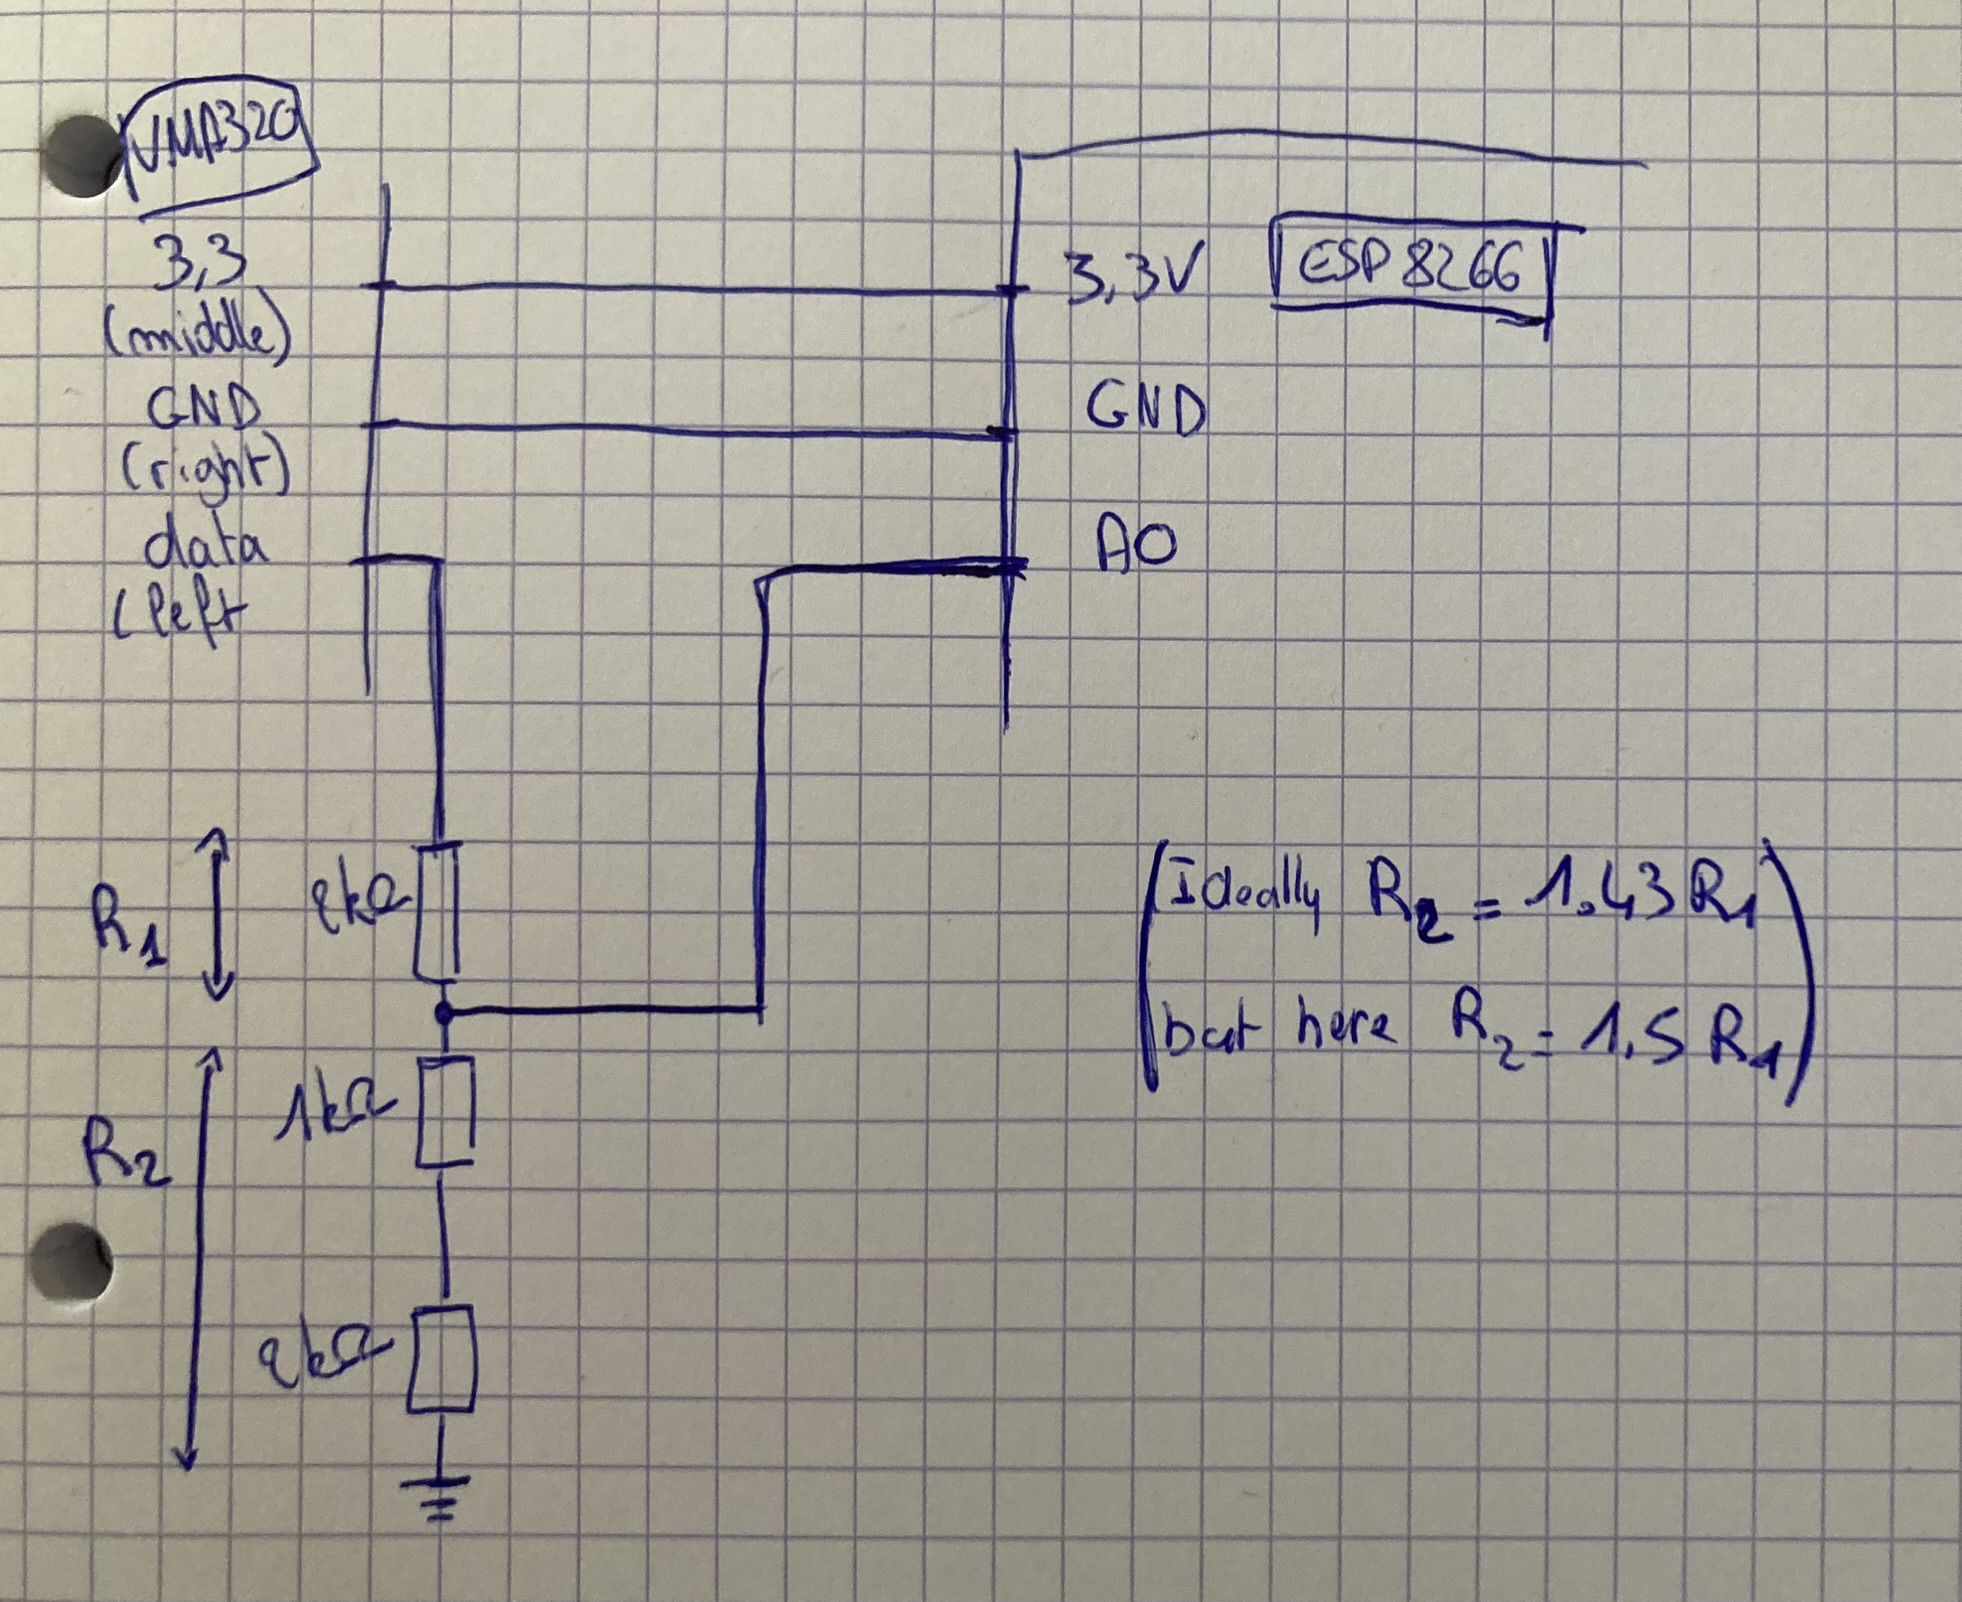 VMA320
3,3
(middle)
GND
(right)
data
(left
3,3V
ESP 8266
GND
A0
R1
2kΩ
R2
1kΩ
2kΩ
(Ideally R2 = 1.43 R1
but here R2 = 1.5 R1)